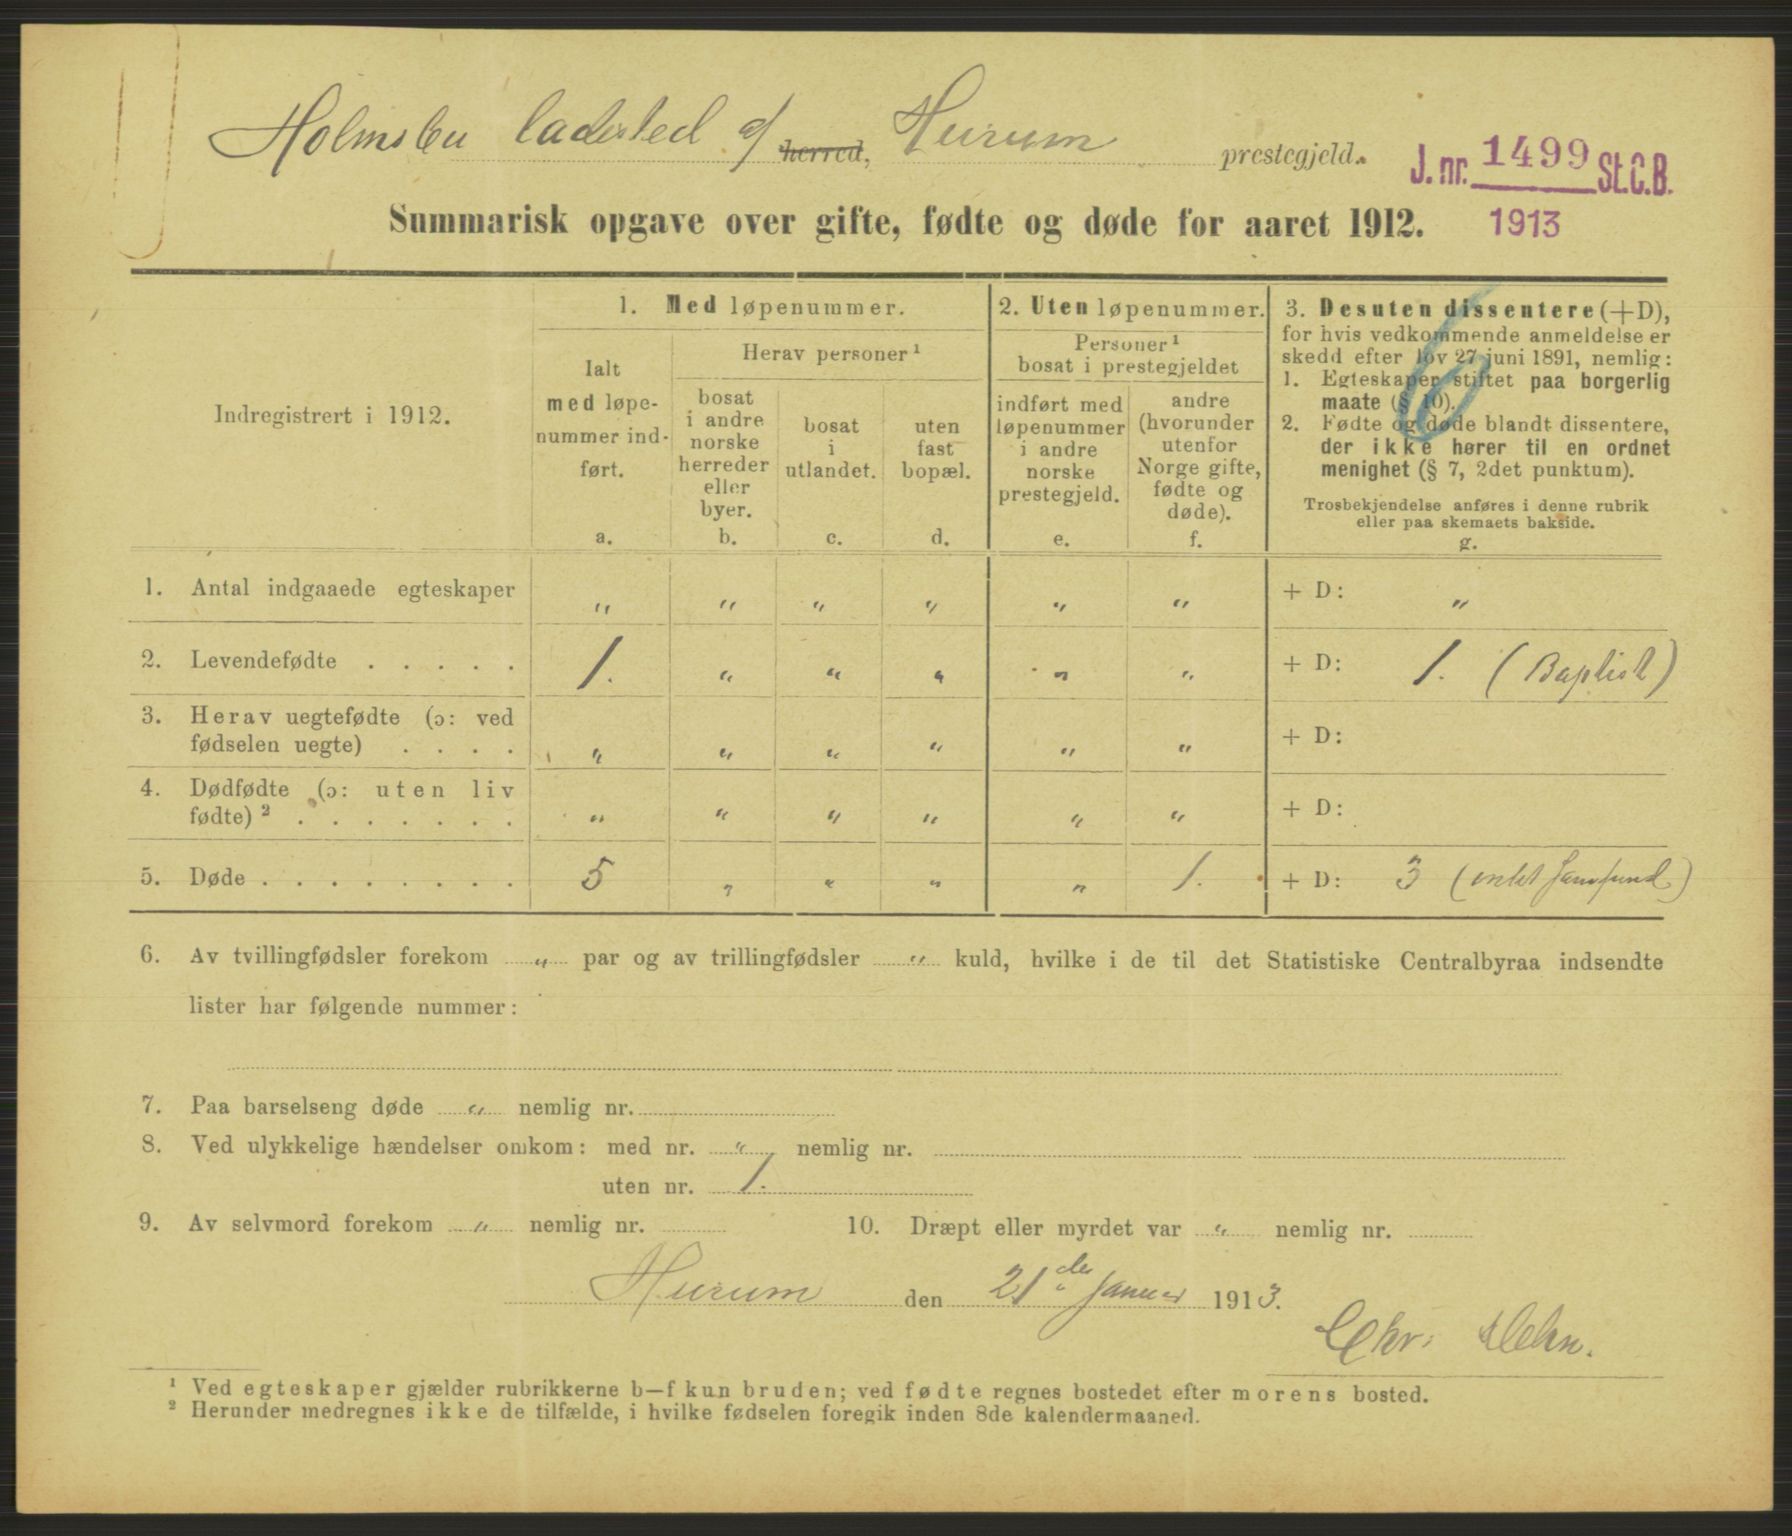 Holmsbu ladested af herred, Hurum prestegjeld.
J. nr. 1499 St.C.B.
1913
Summarisk opgave over gifte, fødte og døde for aaret 1912.
Indregistrert i 1912.
1. Med løpenummer.
Ialt
med løpe-
nummer ind-
ført.
a.
Herav personer ¹
bosat
i andre
norske
herreder
eller
byer.
b.
bosat
i
utlandet.
c.
uten
fast
bopæl.
d.
2. Uten løpenummer.
Personer ¹
bosat i prestegjeldet
indført med
løpenummer
i andre
norske
prestegjeld.
e.
andre
(hvorunder
utenfor
Norge gifte,
fødte og
døde).
f.
3. Desuten dissentere (+D),
for hvis vedkommende anmeldelse er
skedd efter lov 27 juni 1891, nemlig:
1. Egteskaper stiftet paa borgerlig
maate (§ 10).
2. Fødte og døde blandt dissentere,
der ikke hører til en ordnet
menighet (§ 7, 2det punktum).
Trosbekjendelse anføres i denne rubrik
eller paa skemaets bakside.
g.
1. Antal indgaaede egteskaper " " " " " " + D: "
2. Levendefødte . . . . . 1. " " " " " + D: 1. (Baptist)
3. Herav uegtefødte (ɔ: ved
fødselen uegte) . . . . " " " " " " + D:
4. Dødfødte (ɔ: uten liv
fødte) ² . . . . . . . " " " " " " + D:
5. Døde . . . . . . . . 5 " " " " 1. + D: 3
6. Av tvillingfødsler forekom " par og av trillingfødsler " kuld, hvilke i de til det Statistiske Centralbyraa indsendte
lister har følgende nummer:
7. Paa barselseng døde " nemlig nr.
8. Ved ulykkelige hændelser omkom: med nr. " nemlig nr.
uten nr. 1.
9. Av selvmord forekom " nemlig nr.
10. Dræpt eller myrdet var " nemlig nr.
Hurum den 21de Januar 1913.
Chr.
¹ Ved egteskaper gjælder rubrikkerne b—f kun bruden; ved fødte regnes bostedet efter morens bosted.
² Herunder medregnes ikke de tilfælde, i hvilke fødselen foregik inden 8de kalendermaaned.